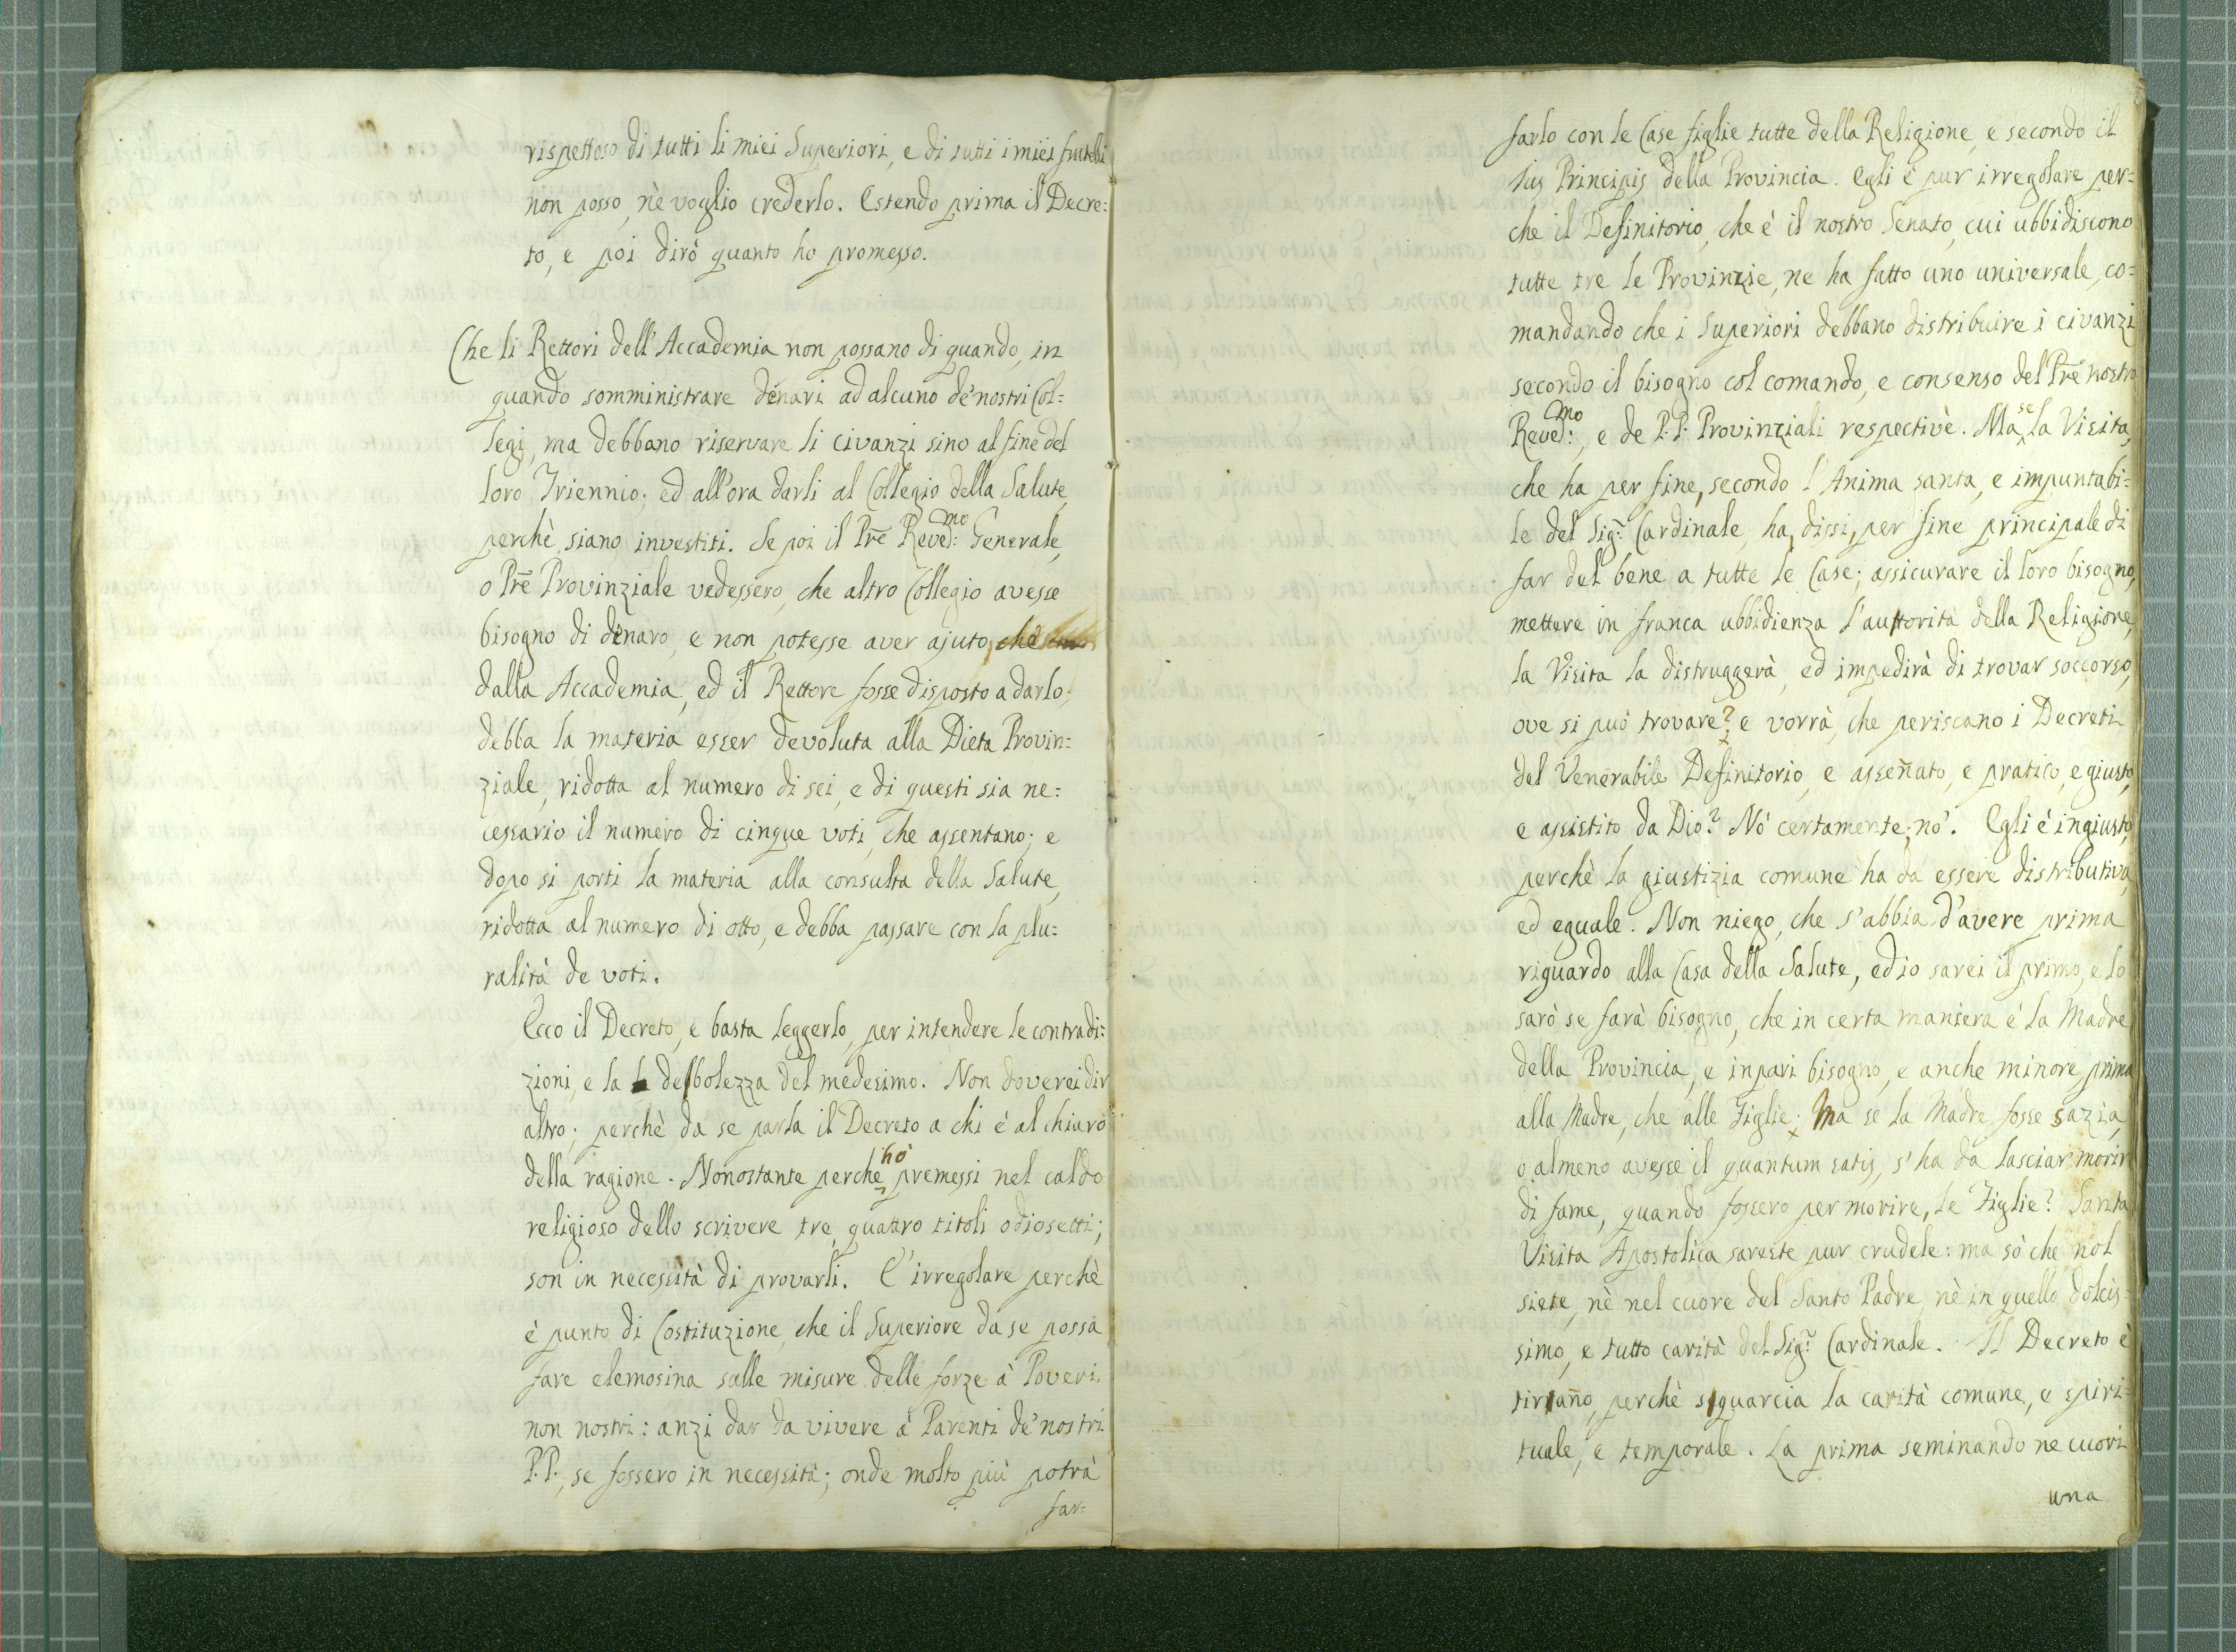 rispettoso di tutti li miei Superiori, e di tutti i miei fratelli
non posso, nè voglio crederlo. Estendo prima il Decre=
to, e poi dirò quanto ho promesso.
Che li Rettori dell'Accademia non possano di quando, in
quando somministrare denari ad alcuno de' nostri Col=
legi, ma debbano riservare li civanzi sino al fine del
loro Triennio; ed all'ora darli al Collegio della Salute,
perchè siano investiti. Se poi il Prē Reved:mo Generale,
o Prē Provinziale vedessero, che altro Collegio avesse
bisogno di denaro, e non potesse aver ajuto, che
dalla Accademia, ed il Rettore fosse disposto a darlo;
debba la materia esser devoluta alla Dieta Provin=
ziale, ridotta al numero di sei, e di questi sia ne=
cessario il numero di cinque voti, che assentano; e
dopo si porti la materia alla consulta della Salute,
ridotta al numero di otto, e debba passare con la plu=
ralità de voti.
Ecco il Decreto, e basta leggerlo, per intendere le contradi=
zioni, e la debolezza del medesimo. Non doverei dir
altro; perchè da se parla il Decreto a chi è al chiaro
della ragione. Nonostante perchè hò premessi nel caldo
religioso dello scrivere tre, quattro titoli odiosetti;
son in necessità di provarli. E' irregolare perchè
è punto di Costituzione, che il Superiore da se possa
fare elemosina salle misure delle forze à Poveri
non nostri: anzi dar da vivere à Parenti de' nostri
P.P., se fossero in necessità; onde molto più potrà
far=
farlo con le Case figlie tutte della Religione, e secondo il
Jus Principis della Provincia. Egli è pur irregolare per=
che il Definitorio, che è il nostro Senato, cui ubbidiscono
tutte tre le Provinzie, ne ha fatto uno universale, co=
mandando che i Superiori debbano distribuire i civanzi
secondo il bisogno col comando, e consenso del Prē nostro
Reved:mo, e de P.P. Provinziali respectivè. Ma se la Visita,
che ha per fine, secondo l'Anima santa, e impuntabi=
le del Sig:r Cardinale, ha, dissi, per fine principale di
far del bene a tutte le Case; assicurare il loro bisogno,
mettere in franca ubbidienza l'autorità della Religione,
la Visita la distruggerà, ed impedirà di trovar soccorso,
ove si può trovare? e vorrà, che periscano i Decreti
del Venerabile Definitorio, e asseñato, e pratico, e giusto,
e assistito da Dio? Nò certamente, nò. Egli è ingiusto,
perchè la giustizia comune ha da essere distributiva,
ed eguale. Non niego, che s'abbia d'avere prima
riguardo alla Casa della Salute, ed io sarei il primo, e lo
sarò se farà bisogno, che in certa maniera è la Madre
della Provincia, e in pari bisogno, e anche minore prima
alla Madre, che alle Figlie; Ma se la Madre fosse sazia,
o almeno avesse il quantum satis, s'ha da lasciar morir
di fame, quando fossero per morire, le Figlie? Santa
Visita Apostolica sareste pur crudele: ma sò che nol
siete, nè nel cuore del Santo Padre, nè in quello dolcis=
simo, e tutto carità del Sig:r Cardinale. Il Decreto è
tirañno, perchè squarcia la carità comune, e spiri=
tuale, e temporale. La prima seminando ne cuori
una